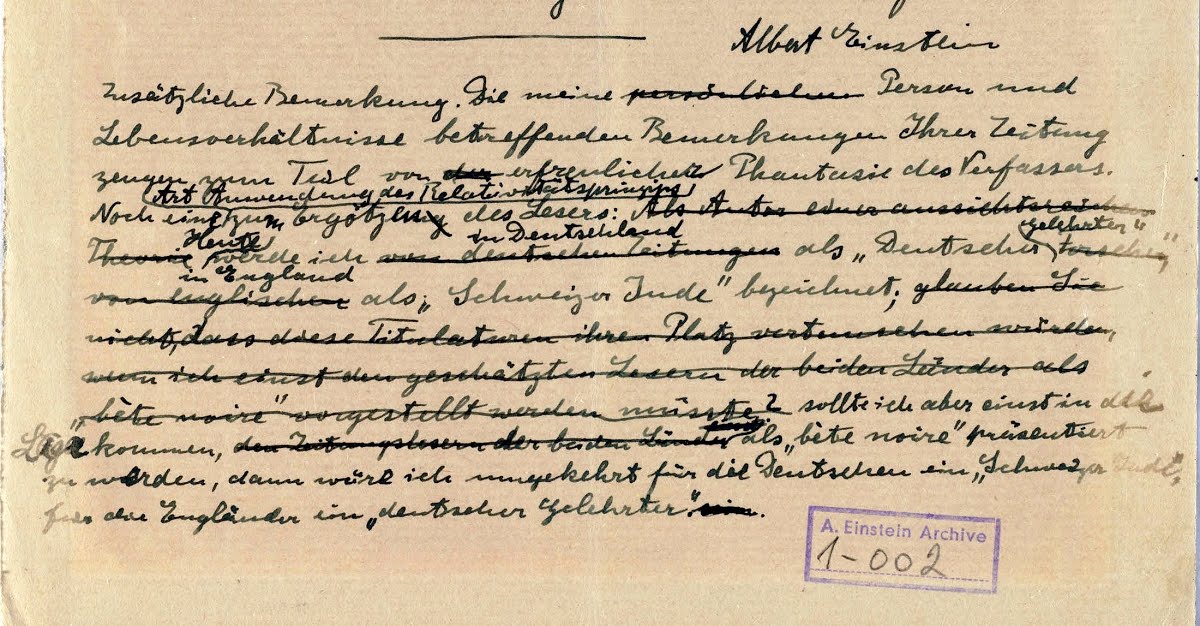 Albert Einstein
Zusätzliche Bemerkung. Die meine persönlichen Person und
Lebensverhältnisse betreffenden Bemerkungen Ihrer Zeitung
zeugen zum Teil von der erfreulicher Phantasie des Verfassers.
Art Anwendung des Relativitätsprinzips
Noch eine zum Ergötzen des Lesers: Als Autor einer aussichtsreichen
Heute in Deutschland Gelehrter"
Theorie werde ich von deutschen Zeitungen als „Deutscher Forscher",
in England
von englischen als „Schweizer Jude" bezeichnet; glauben Sie
nicht, dass diese Titulaturen ihren Platz vertauschen würden,
wenn ich einst den geschätzten Lesern der beiden Länder als
„bête noire" vorgestellt werden müsste? sollte ich aber einst in die
Lage kommen, den Zeitungslesern der beiden Länder als „bête noire" präsentiert
zu werden, dann wäre ich umgekehrt für die Deutschen ein „Schweizer Jude",
für die Engländer ein „deutscher Gelehrter".
A. Einstein Archive
1-002